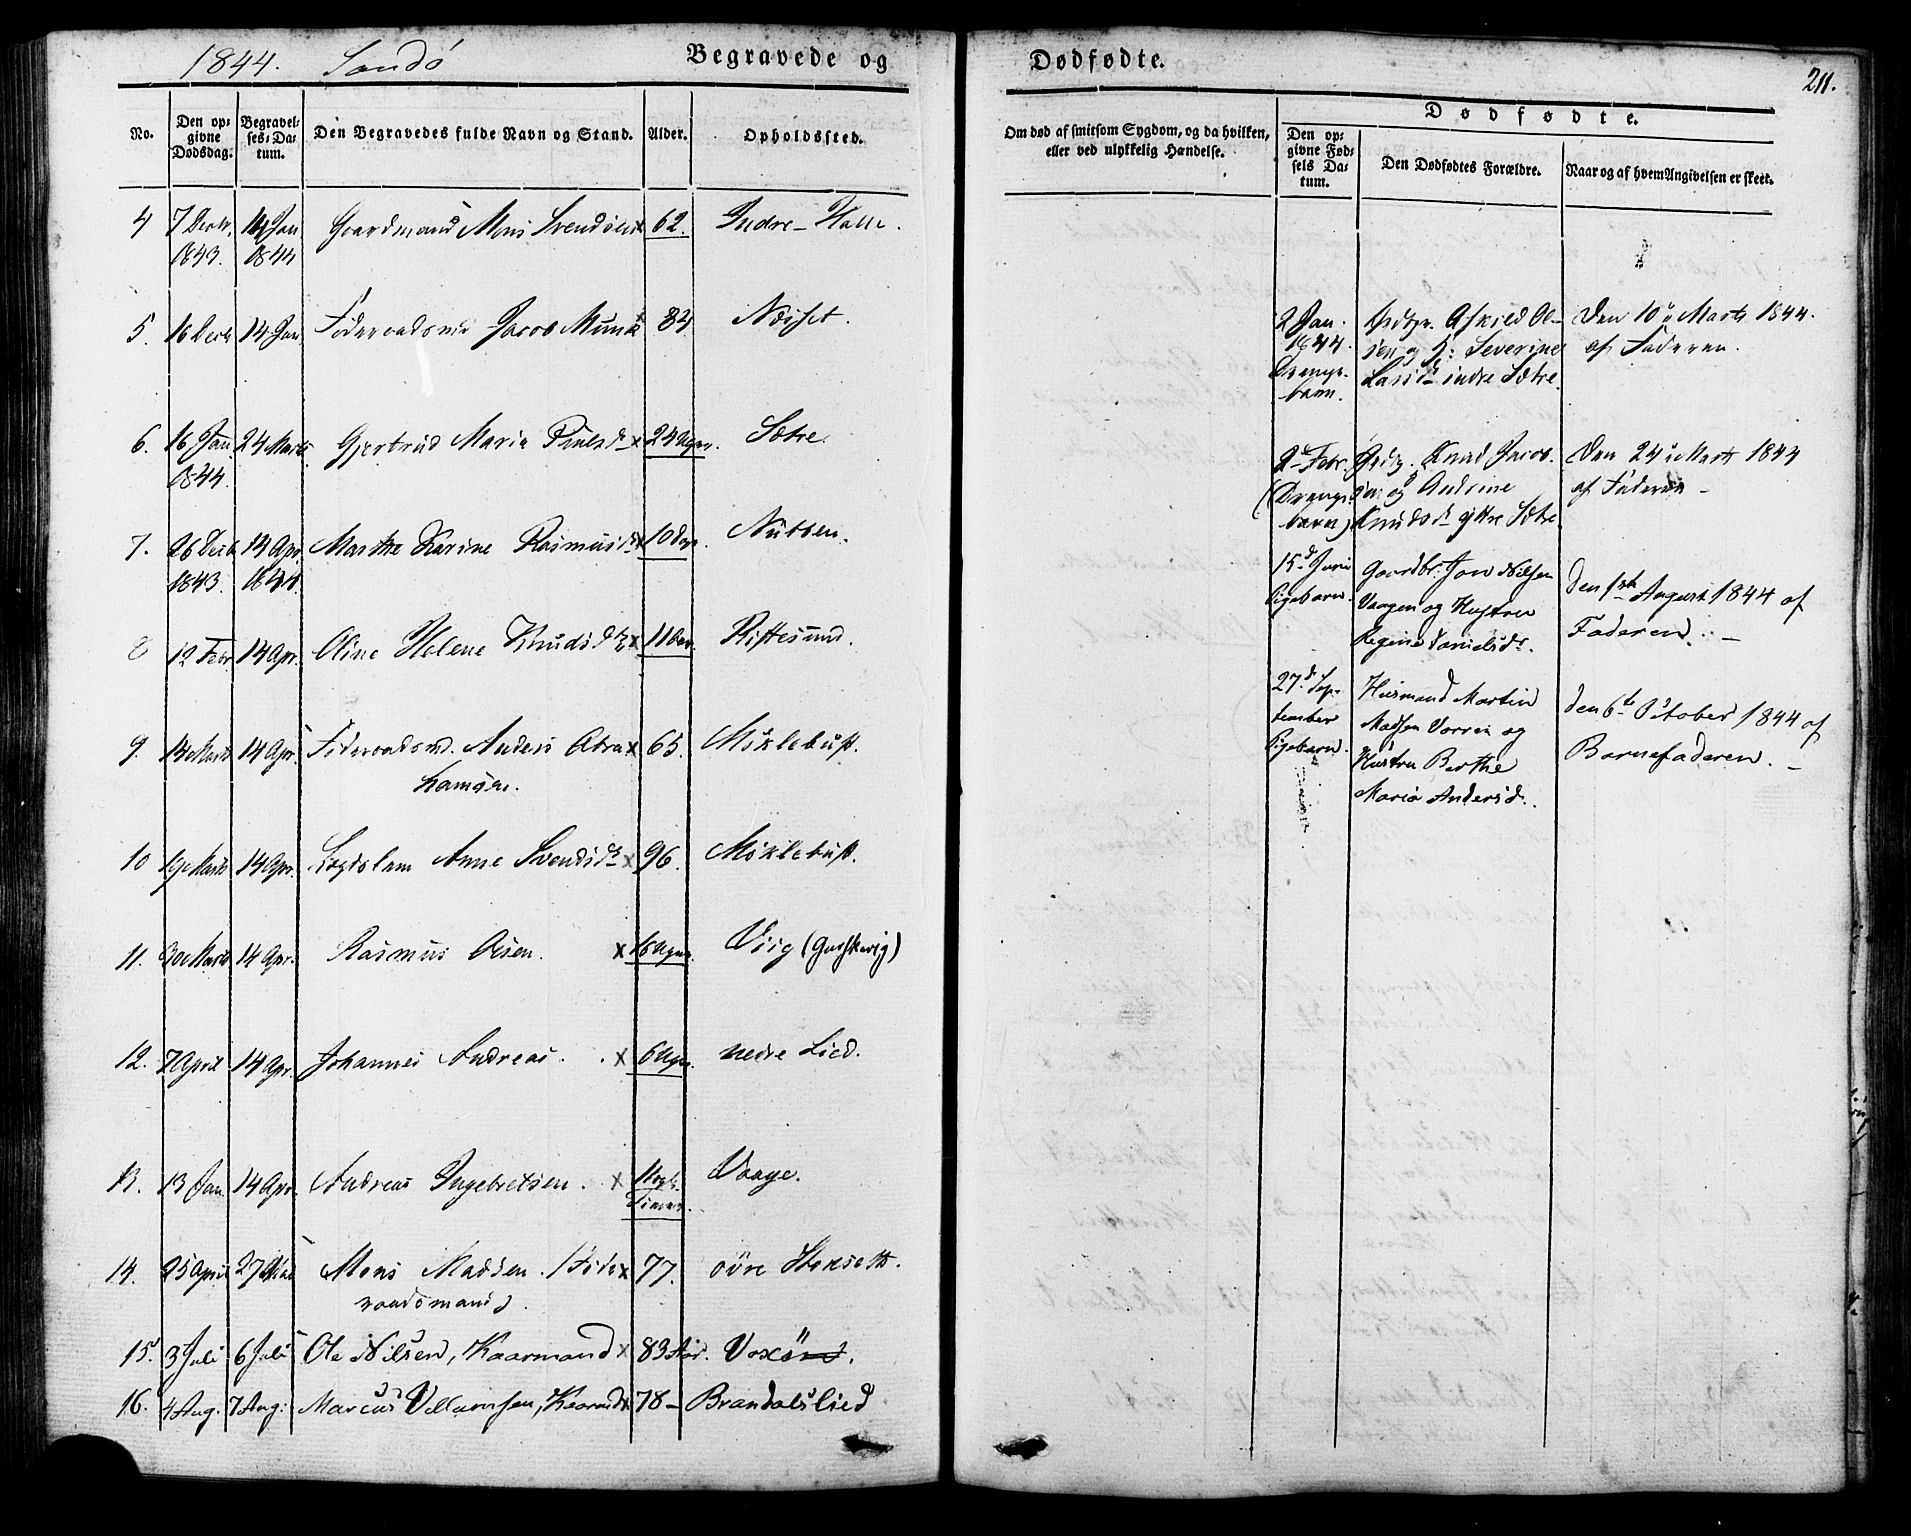 1844. Sandö Begravede og Dødfødte. 211.
No. Den opgivne Dødsdag. Begravelses-Datum. Den Begravedes fulde Navn og Stand. Alder. Opholdssted.
Om død af smitsom Sygdom, og da hvilken, eller ved ulykkelig Hændelse.
Dødfødte.
Den opgivne Fødsels Datum. Den Dødfødtes Forældre. Naar og af hvem Angivelsen er skeet.
4 7 Decbr. 14 Jan Gaardmand Mons Svendsen x 62. Indre-
1843. 1844
5. 16 Decb 14 Jan. Jacob Munk Næsset.
6. 16 Jan. 24 Marts Gjertrud Maria x 24 Uger. Sætre.
1844.
7. 26 Decb 14 Apr. Marthe Karine Rasmusd x 10 Dage. Nütten.
1843. 1844.
8 12 Febr 14 Apr. Oline Helene Knudsd x Riftesund.
9. 14 Marts 14 Apr. Föderaadsmd. Anders Abra x 65. Mÿklebust.
hamsen.
10 19 Marts 14 Apr. Anne Svendsd x 96. Mÿklebust.
11. 30 Marts 14 Apr. Rasmus Olsen. x 16 Uger. Viig (Gurskevig)
12. 7 April 14 Apr. Johannes Andreas. x 6 Uger. nedre Lied.
13. 13 Jan. 14 Apr. Andreas Ingebretsen. x Vaage.
Timer.
14. 25 April 27 Mons Madsen. (Föde x 77. övre Stokseth.
raadsmand)
15. 3 Juli 6 Juli Ole Nilsen, Kaarmand x 83 Aar. Voxö
16. 4 Aug. 7 Aug: Marcus Villumsen, Kaarmd x 78 - Brandalslied
2 Jan. Askild Ol- Den 10 Marts 1844.
1844. sen og H: Severine af Faderen.
Drenge- Larsd indre Sætre.
barn.
2 Febr. Knud Jacob. Den 24 Marts 1844
(Drenge sen og Andrine af Faderen -
barn) Knudsd ytre Sætre
15d Juni Gaardbr: Jon Nilsen den 1ste August 1844 af
Pigebarn. Vaagen og Hustru Faderen. -
Regine Danielsd.
27d Sep- Husmand Martin den 6te October 1844 af
tember Madsen Vorren og Barnefaderen. -
Pigebarn. Hustru Berthe
Maria Andersd.